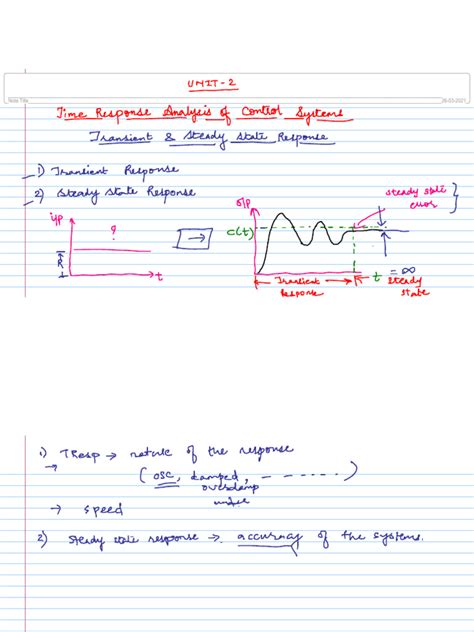 UNIT-2
Note Title
26-03-2021
Time Response Analysis of Control Systems
Transient & Steady State Response
1) Transient Response
2) Steady State Response
steady state
error
i/p
?
R
t
o/p
c(t)
t = ∞
Transient
Response
steady
state
1) TResp → nature of the response
→ (osc, damped, - - - - - - )
overdamp
→ speed
2) steady state response → accuracy of the systems.